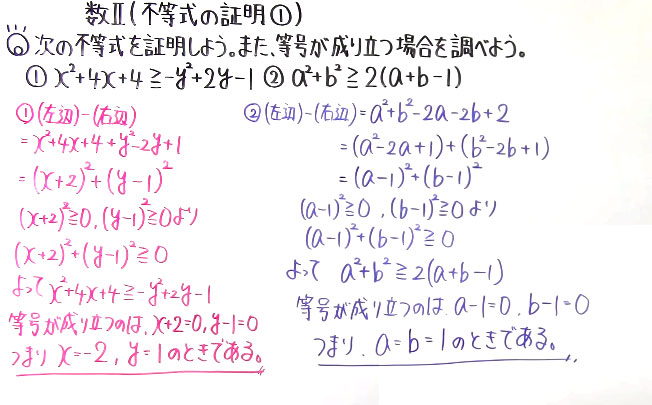 数Ⅱ(不等式の証明①)
次の不等式を証明しよう。また、等号が成り立つ場合を調べよう。
① x²+4x+4≧-y²+2y-1 ② a²+b²≧2(a+b-1)
①(左辺)-(右辺)
=x²+4x+4+y²-2y+1
=(x+2)²+(y-1)²
(x+2)²≧0,(y-1)²≧0より
(x+2)²+(y-1)²≧0
よって x²+4x+4≧-y²+2y-1
等号が成り立つのは、x+2=0,y-1=0
つまり x=-2, y=1のときである。
②(左辺)-(右辺)=a²+b²-2a-2b+2
=(a²-2a+1)+(b²-2b+1)
=(a-1)²+(b-1)²
(a-1)²≧0,(b-1)²≧0より
(a-1)²+(b-1)²≧0
よって a²+b²≧2(a+b-1)
等号が成り立つのは、a-1=0,b-1=0
つまり、a=b=1のときである。